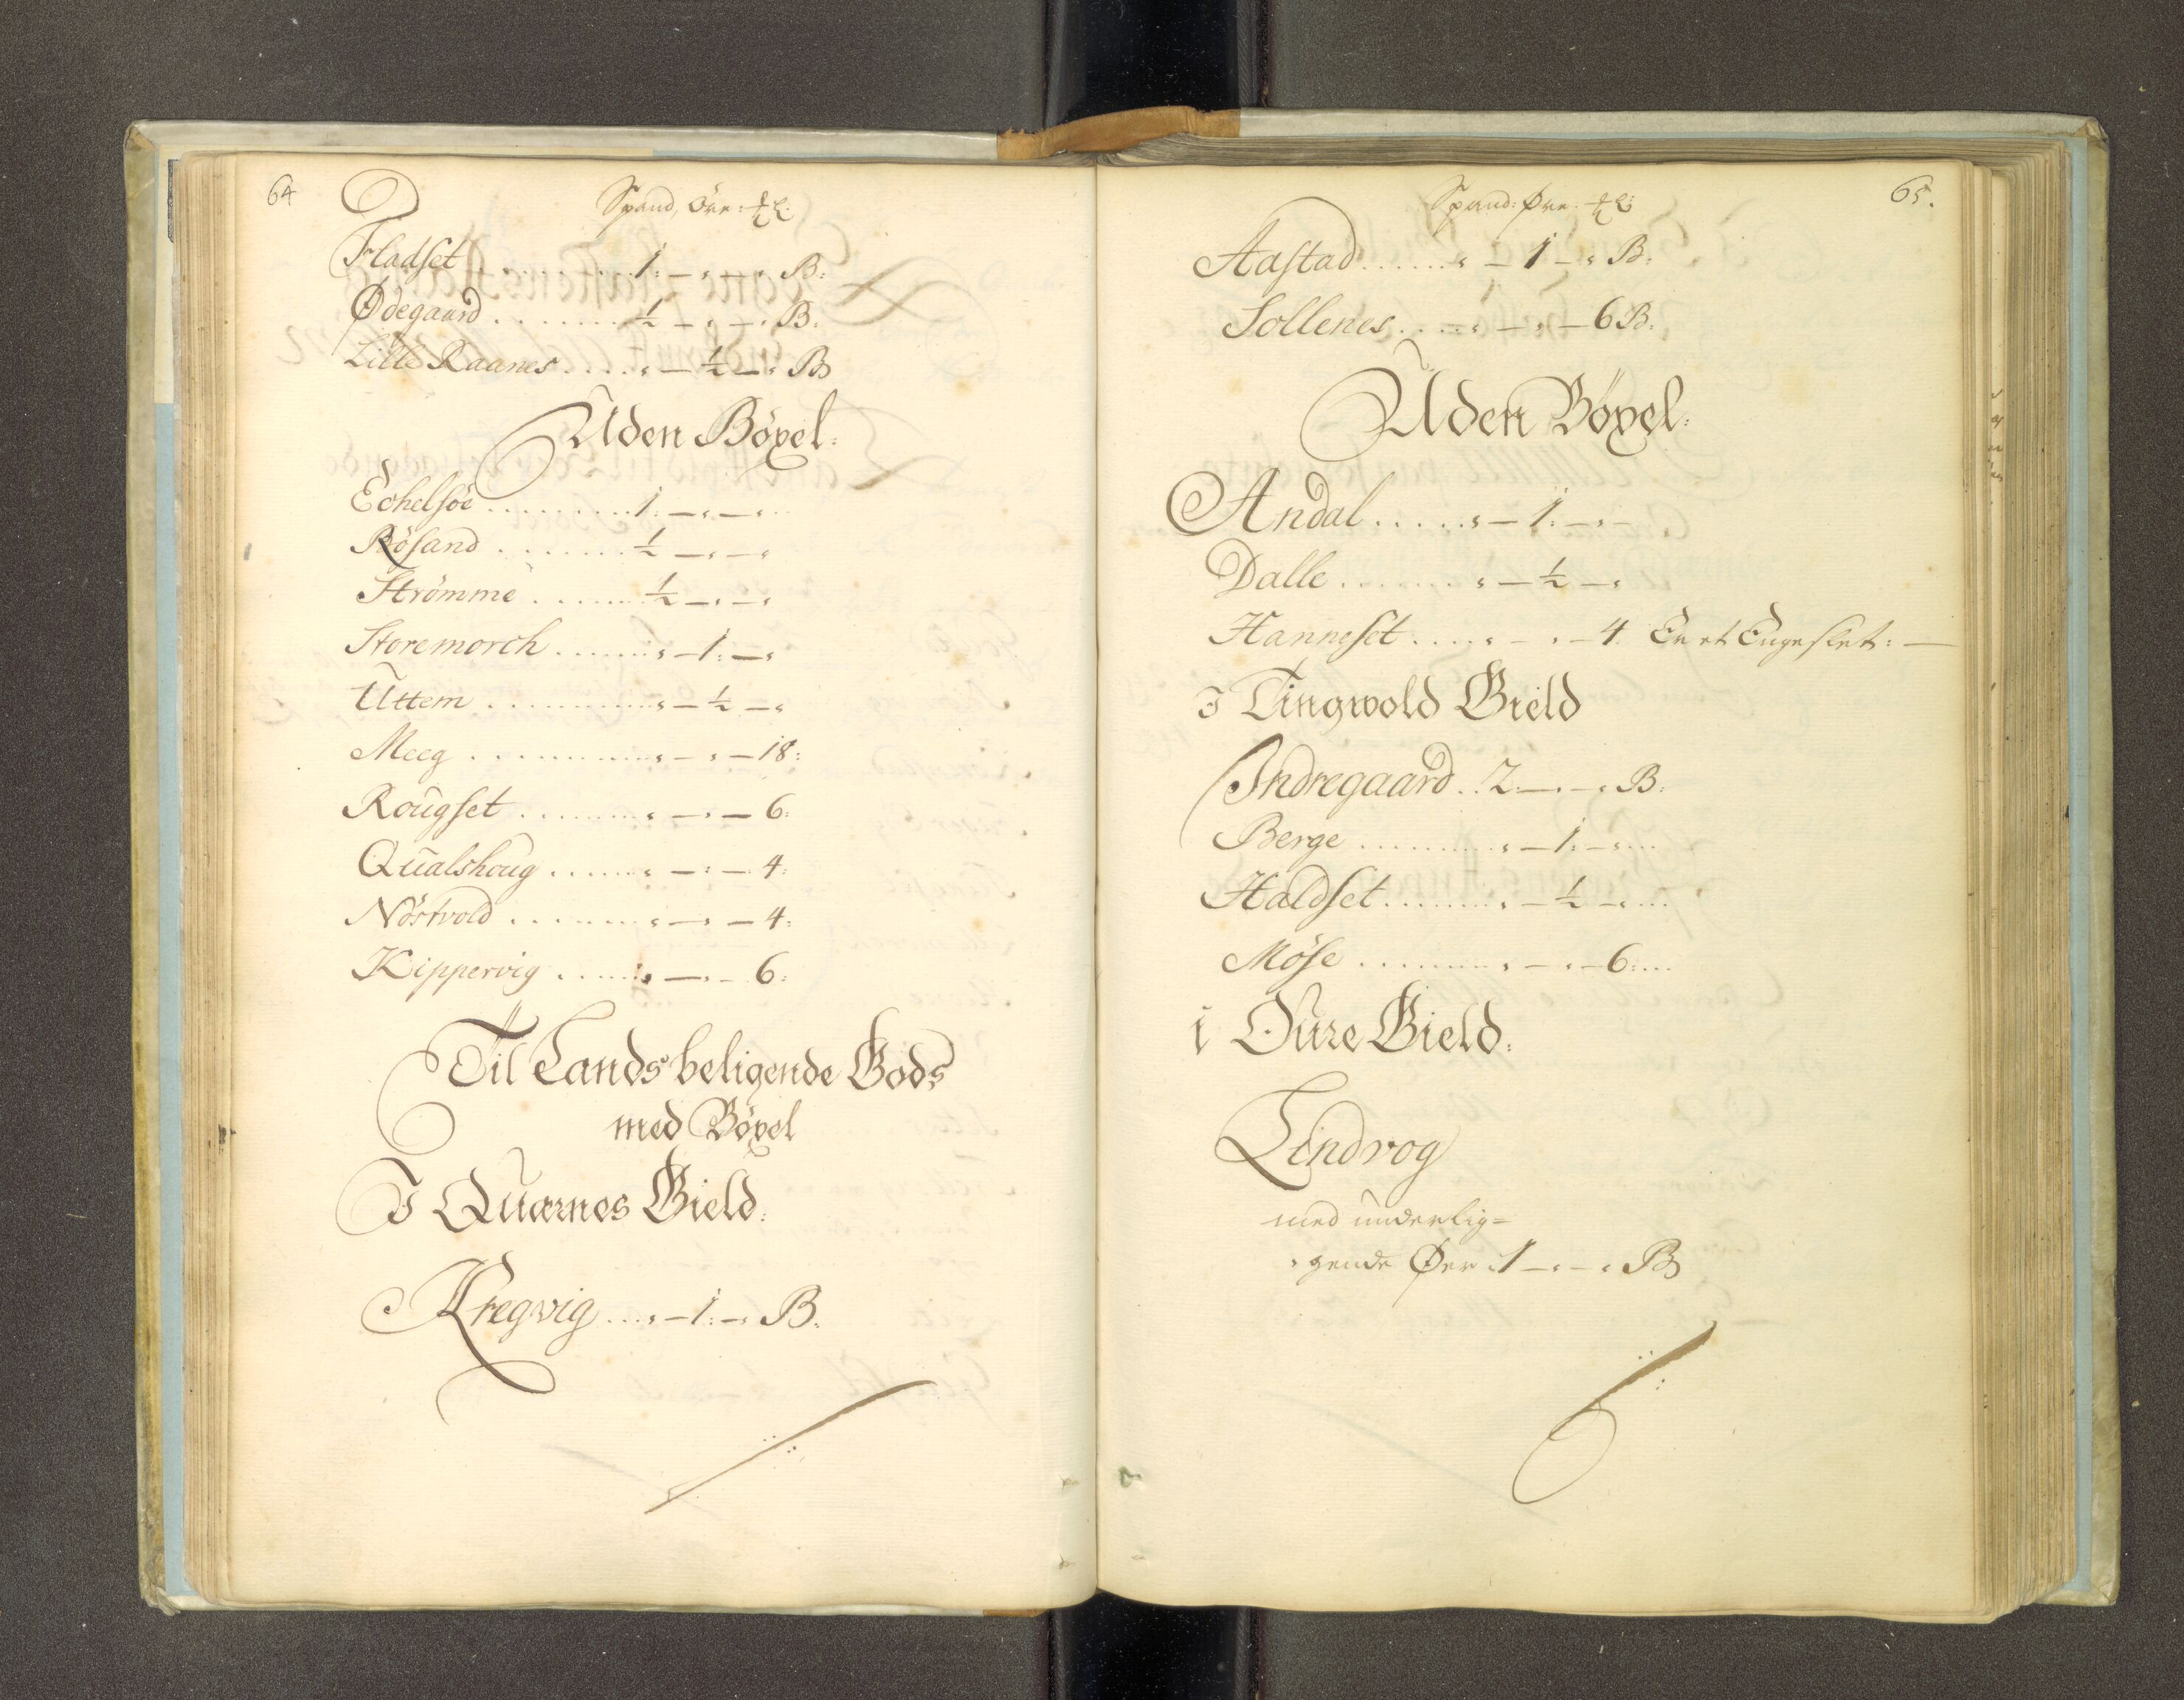 64
Spand, Öre: ℔:
Fladset . . . . . . . . 1: — „ — „ B:
Ødegaard . . . . . . . ½ — „ — „ B:
Lille Raanes . . . . . „ — ½ — „ B
Uden Böxel:
Echelsöe . . . . . . . . . 1: — „ — „
Rösand . . . . . . . ½ — „ — „
Strömme . . . . . . ½ — „ — „
Storemorch . . . . . . . „ — 1: — „
Uttem . . . . . . . . . . . „ — ½ — „
Meeg . . . . . . . . . . . „ — „ — 18:
Rougset . . . . . . . . . „ — „ — 6:
Qualshoug . . . . . . „ — : — 4:
Nöstvold . . . . . . . . „ — „ — 4:
Kippervig . . . . . „ — „ — 6:
Til Lands beligende Gods
med Böxel
I Quarnes Gield:
Kregvig . . . „ — 1: — „ B:
65.
Spand: Øre: ℔:
Aastad . . . . . . „ — 1 — „ B:
Sollenes . . . . „ — „ — 6 B:
Uden Böxel:
Andal . . . . . „ — 1: — „ —
Dalle . . . . . . . „ — ½ — „
Hanneset . . . . „ — „ — 4. Er et Engeslet: —
I Tingwold Gield
Indregaard . . 2: — „ — „ B:
Berge . . . . . . . . . „ — 1: — „ . . .
Haldset . . . . . . . . „ — ½ — „ . . .
Möse . . . . . . . . „ — „ — 6: . . .
i Oure Gield:
Lindvog
med underlig=
„gende Øer : 1 — „ — „ B